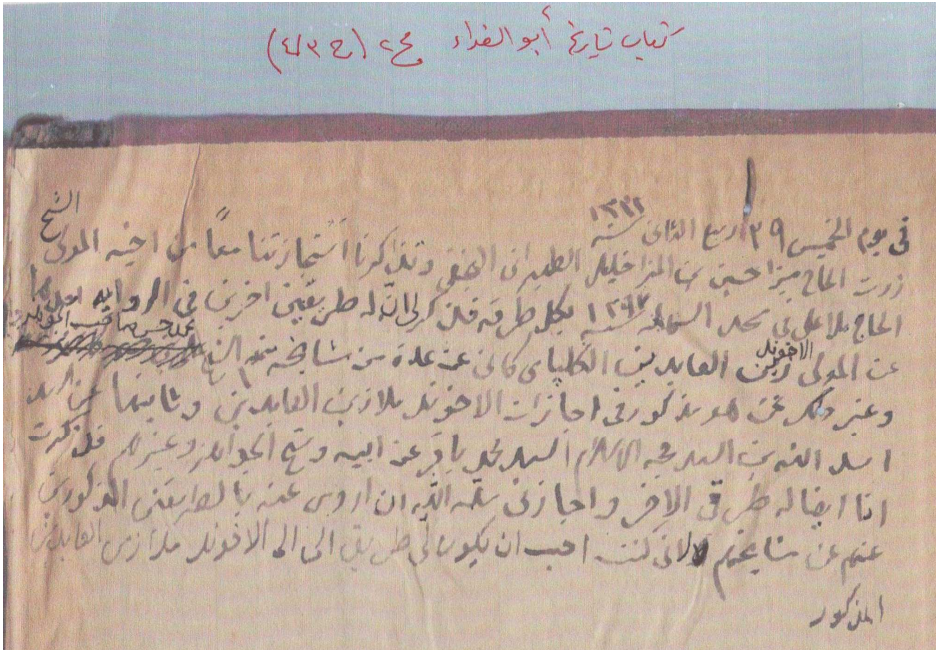 كتاب تاريخ أبو الفداء مج٢ (ج ٣/٤)
١٣٢٢
في يوم الخميس ٢٩ ربيع الثاني سنة
الشيخ
زرت الحاج ميرزا حسين بن الميرزا خليل الطهراني النجفي وتذكرنا استجازتنا معاً من اخيه المولى
الحاج ملا علي في سنة ١٢٩٧ بكل طرقه فذكر لي ان له طريقين اخرين في الرواية احدهما
عن المولى الاخوند زين العابدين الكلپايكاني عن عدة من مشايخه منهم الشيخ
وغيره ممن هو مذكور في اجازات الاخوند ملا زين العابدين وثانيهما عن السيد
اسد الله بن السيد حجة الاسلام السيد محمد باقر عن ابيه وشيخ الجواهر وغيرهم فذكرت
انا ايضا له طرقي الاخر واجازني سلمه الله ان اروي عنه بالطريقين المذكورين
عنهم عن مشايخهم لاني كنت احب ان يكون لي طريق الى الاخوند ملا زين العابدين
المذكور